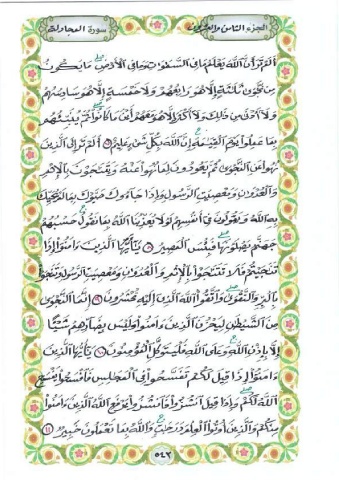 الجزء الثامن والعشرون
سورة المجادلة
أَلَمْ تَرَ أَنَّ اللَّهَ يَعْلَمُ مَا فِي السَّمَاوَاتِ وَمَا فِي الْأَرْضِ مَا يَكُونُ
مِن نَّجْوَى ثَلَاثَةٍ إِلَّا هُوَ رَابِعُهُمْ وَلَا خَمْسَةٍ إِلَّا هُوَ سَادِسُهُمْ
وَلَا أَدْنَى مِن ذَلِكَ وَلَا أَكْثَرَ إِلَّا هُوَ مَعَهُمْ أَيْنَ مَا كَانُوا ثُمَّ يُنَبِّئُهُم
بِمَا عَمِلُوا يَوْمَ الْقِيَامَةِ إِنَّ اللَّهَ بِكُلِّ شَيْءٍ عَلِيمٌ ٧ أَلَمْ تَرَ إِلَى الَّذِينَ
نُهُوا عَنِ النَّجْوَى ثُمَّ يَعُودُونَ لِمَا نُهُوا عَنْهُ وَيَتَنَاجَوْنَ بِالْإِثْمِ
وَالْعُدْوَانِ وَمَعْصِيَتِ الرَّسُولِ وَإِذَا جَاءُوكَ حَيَّوْكَ بِمَا لَمْ يُحَيِّكَ
بِهِ اللَّهُ وَيَقُولُونَ فِي أَنفُسِهِمْ لَوْلَا يُعَذِّبُنَا اللَّهُ بِمَا نَقُولُ حَسْبُهُمْ
جَهَنَّمُ يَصْلَوْنَهَا فَبِئْسَ الْمَصِيرُ ٨ يَا أَيُّهَا الَّذِينَ ءَامَنُوا إِذَا
تَنَاجَيْتُمْ فَلَا تَتَنَاجَوْا بِالْإِثْمِ وَالْعُدْوَانِ وَمَعْصِيَتِ الرَّسُولِ وَتَنَاجَوْا
بِالْبِرِّ وَالتَّقْوَى وَاتَّقُوا اللَّهَ الَّذِي إِلَيْهِ تُحْشَرُونَ ٩ إِنَّمَا النَّجْوَى
مِنَ الشَّيْطَانِ لِيَحْزُنَ الَّذِينَ ءَامَنُوا وَلَيْسَ بِضَارِّهِمْ شَيْئًا
إِلَّا بِإِذْنِ اللَّهِ وَعَلَى اللَّهِ فَلْيَتَوَكَّلِ الْمُؤْمِنُونَ ١٠ يَا أَيُّهَا الَّذِينَ
ءَامَنُوا إِذَا قِيلَ لَكُمْ تَفَسَّحُوا فِي الْمَجَالِسِ فَافْسَحُوا يَفْسَحِ
اللَّهُ لَكُمْ وَإِذَا قِيلَ انشُزُوا فَانشُزُوا يَرْفَعِ اللَّهُ الَّذِينَ ءَامَنُوا
مِنكُمْ وَالَّذِينَ أُوتُوا الْعِلْمَ دَرَجَاتٍ وَاللَّهُ بِمَا تَعْمَلُونَ خَبِيرٌ ١١
٥٤٣